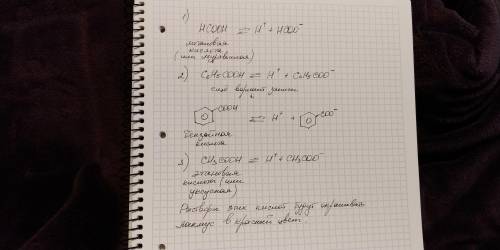 1)
HCOOH ⇌ H⁺ + HCOO⁻
метановая
кислота
(или муравьиная)
2) C₆H₅COOH ⇌ H⁺ + C₆H₅COO⁻
еще вариант записи
COOH ⇌ H⁺ + COO⁻
бензойная
кислота
3) CH₃COOH ⇌ H⁺ + CH₃COO⁻
этановая
кислота (или
уксусная)
Растворы этих кислот будут окрашивать
лакмус в красный цвет.